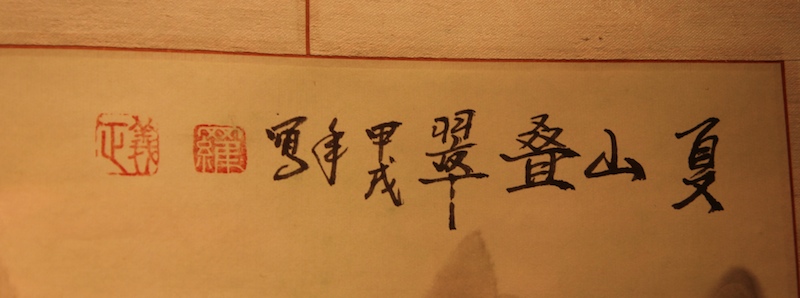 夏山叠翠
甲戌年写
義正